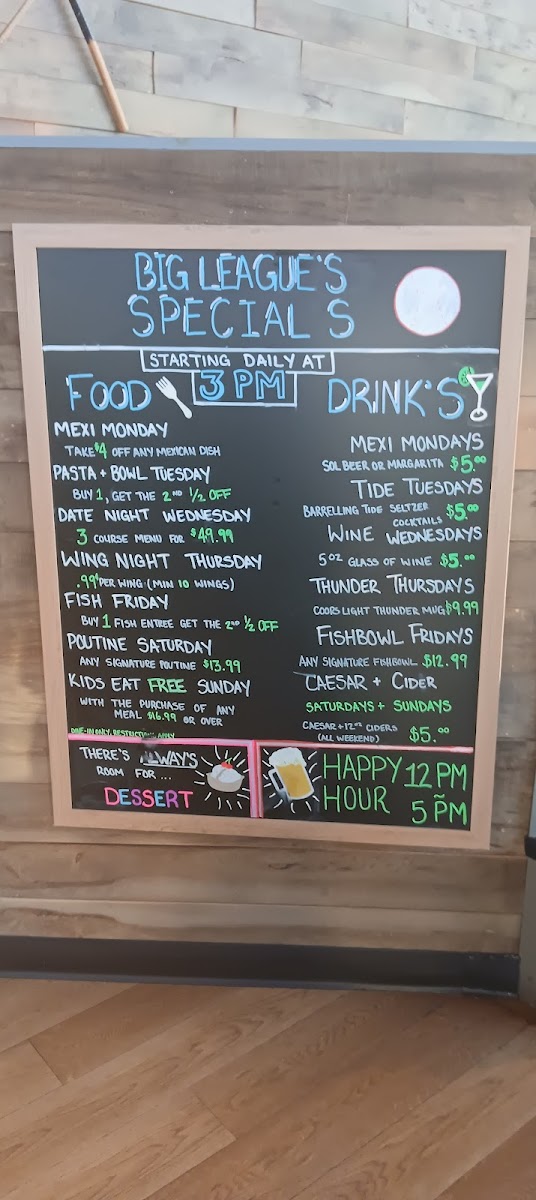 BIG LEAGUE'S
SPECIAL S
STARTING DAILY AT
3 PM
FOOD
MEXI MONDAY
TAKE $4 OFF ANY MEXICAN DISH
PASTA + BOWL TUESDAY
BUY 1, GET THE 2ND 1/2 OFF
DATE NIGHT WEDNESDAY
3 COURSE MENU FOR $49.99
WING NIGHT THURSDAY
.99¢ PER WING (MIN 10 WINGS)
FISH FRIDAY
BUY 1 FISH ENTREE GET THE 2ND 1/2 OFF
POUTINE SATURDAY
ANY SIGNATURE POUTINE $13.99
KIDS EAT FREE SUNDAY
WITH THE PURCHASE OF ANY
MEAL $16.99 OR OVER
DINE-IN ONLY. RESTRICTIONS APPLY
DRINK'S
MEXI MONDAYS
SOL BEER OR MARGARITA $5.00
TIDE TUESDAYS
BARRELLING TIDE SELTZER
COCKTAILS $5.00
WINE WEDNESDAYS
5 OZ GLASS OF WINE $5.00
THUNDER THURSDAYS
COORS LIGHT THUNDER MUG $9.99
FISHBOWL FRIDAYS
ANY SIGNATURE FISHBOWL $12.99
CAESAR + CIDER
SATURDAYS + SUNDAYS
CAESAR + 12OZ CIDERS
(ALL WEEKEND) $5.00
THERE'S LWAY'S
ROOM FOR ...
DESSERT
HAPPY
HOUR
12 PM
~
5 PM